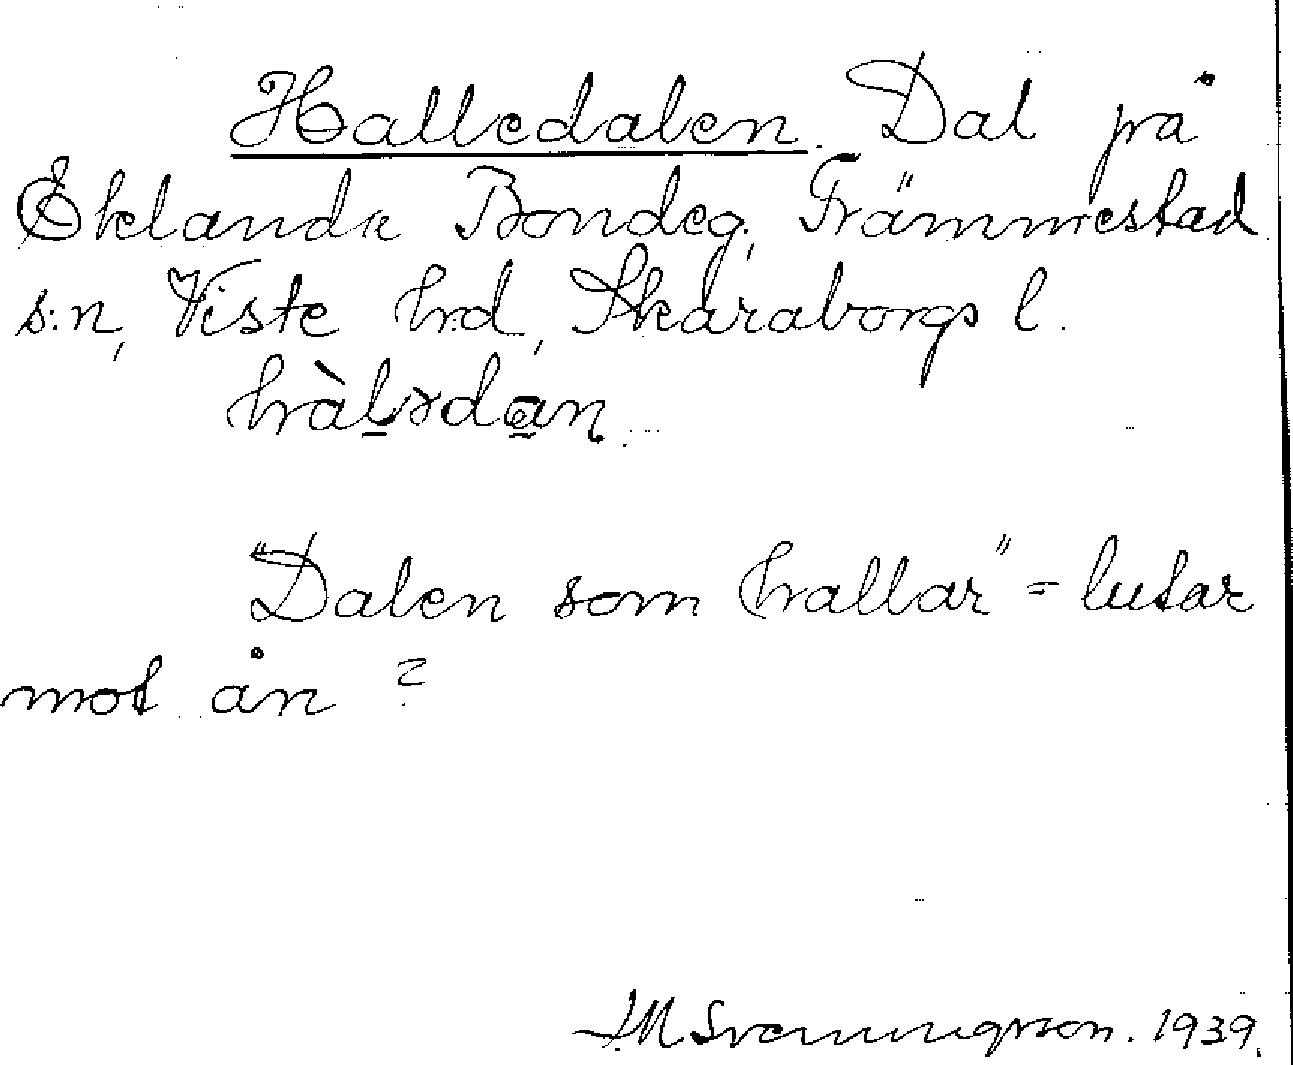 Halledalen. Dal på
Eklanda Bondeg, Främmestad
s:n, Viste hrd, Skaraborgs l.
hàlədan.
"Dalen som hallar" = lutar
mot ån ?
1939.